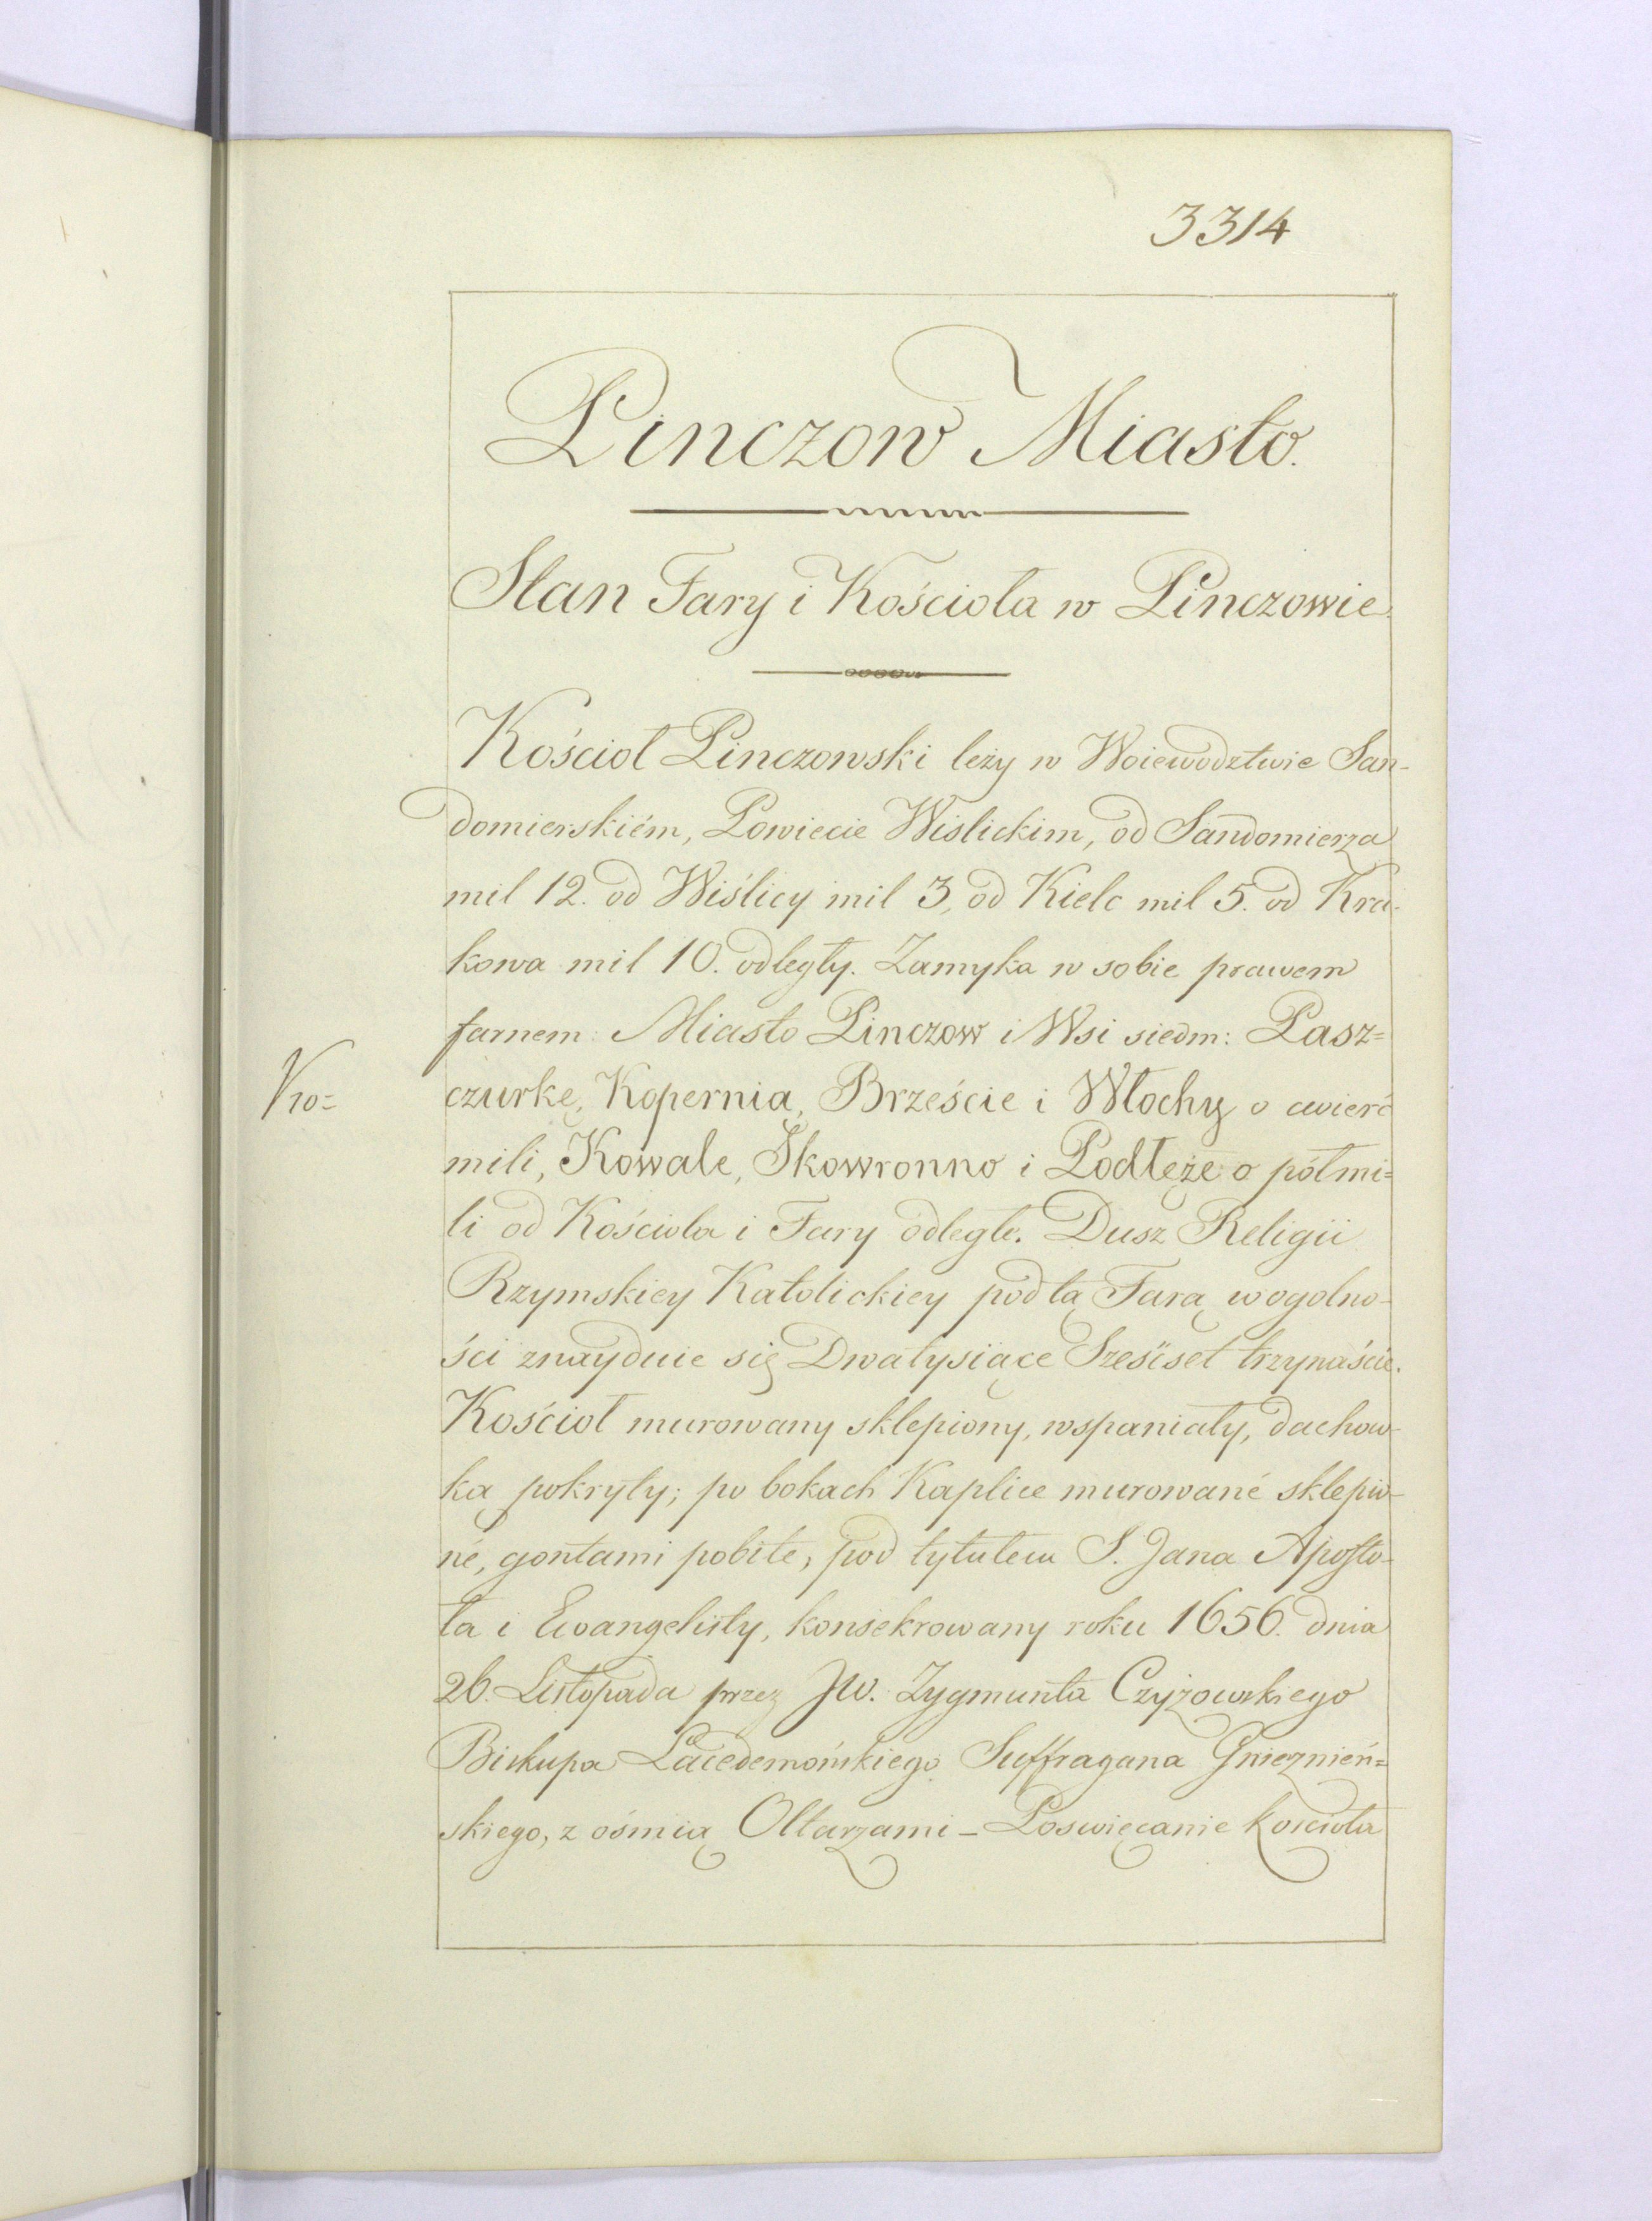 3314
Pinczow Miasto.
Stan Fary i Kościoła w Pinczowie.
Kościoł Pinczowski leży w Woiewodztwie San-
domierskiém, Powiecie Wislickim, od Sandomierza
mil 12. od Wiślicy mil 3, od Kielc mil 5. od Kra-
kowa mil 10. odległy. Zamyka w sobie prawem
farnem: Miasto Pinczow i Wsi siedm: Pasz=
czurkę, Kopernią, Brzeście i Włochy o cwierć
mili, Kowale, Skowronno i Podłęże o półmi=
li od Kościoła i Fary odległe. Dusz Religii
Rzymskiey Katolickiey pod tą Farą w ogolno-
ści znayduie się Dwatysiące Sześćset trzynaście.
Kościoł murowany sklepiony, wspaniały, dachow-
ką pokryty; po bokach Kaplice murowané sklepio-
né, gontami pobite, pod tytułem S. Jana Aposto-
ła i Ewangelisty, konsekrowany roku 1656. dnia
26. Listopada przez JW. Zygmunta Czyżowskiego
Biskupa Lacedemońskiego Suffragana Gnieznień=
skiego, z ośmią Ołtarzami – Poswięcanie kościoła